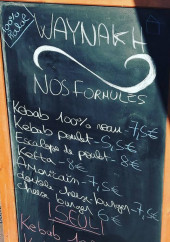 100%
Halal
WAYNAKH
NOS FORMULES
Kebab 100% veau - 7,5€
Kebab poulet - 5,5€
Escalope de poulet - 8€
Kefta - 8€
Américain - 7,5€
double cheese burger - 7,5€
cheese burger 6€
ISOLI
Kebab